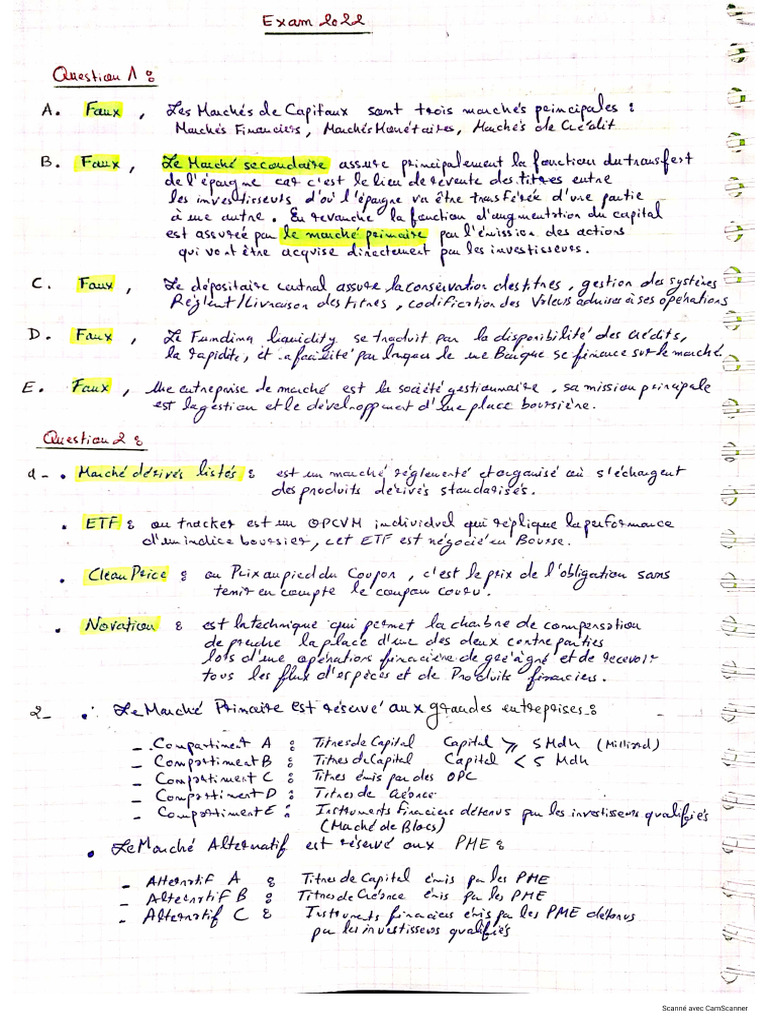 Exam 2022
Question 1 :
A. Faux, Les Marchés de Capitaux sont trois marchés principales :
Marchés Financiers, Marchés Monétaires, Marchés de Crédit
B. Faux, Le Marché secondaire assure principalement la fonction du transfert
de l'épargne car c'est le lieu de revente des titres entre
les investisseurs d'où l'épargne va être transférée d'une partie
à une autre. En revanche la fonction d'augmentation du capital
est assurée par le marché primaire par l'émission des actions
qui vont être acquise directement par les investisseurs.
C. Faux, Le dépositaire central assure la conservation des titres, gestion des systèmes
Réglent/Livraison des titres, codification des Valeurs admises à ses opérations
D. Faux, Le Funding liquidity se traduit par la disponibilité des crédits,
la rapidite, et la facilité par laquelle une Banque se finance sur le marché.
E. Faux, Une entreprise de marché est la société gestionnaire, sa mission principale
est la gestion et le développment d'une place boursière.
Question 2 :
1- • Marché dérivés listés : est un marché réglementé et organisé où s'échangent
des produits dérivés standarisés.
• ETF : ou tracker est un OPCVM individuel qui réplique la performance
d'un indice boursier, cet ETF est négocié en Bourse.
• Clean Price : ou Prix au pied du Coupon, c'est le prix de l'obligation sans
tenir en compte le coupon couru.
• Novation : est la technique qui permet la chambre de compensation
de prendre la place d'une des deux contreparties
lors d'une opérations financière de gré à gré et de recevoir
tous les flux d'espèces et de Produits financiers.
2- • Le Marché Primaire est réservé aux grandes entreprises :
- Compartiment A : Titres de Capital Capital ⩾ 5 Mdh (Milliard)
- Compartiment B : Titres de Capital Capital < 5 Mdh
- Compartiment C : Titres émis par des OPC
- Compartiment D : Titres de Créance
- Compartiment E : Instruments financiers détenus par les investisseurs qualifiés
(Maché de Blocs)
• Le Marché Alternatif est réservé aux PME :
- Alternatif A : Titres de Capital émis par les PME
- Alternatif B : Titres de Créance émis par les PME
- Alternatif C : Instruments financiers émis par les PME détenus
par les investisseurs qualifiés
Scanné avec CamScanner